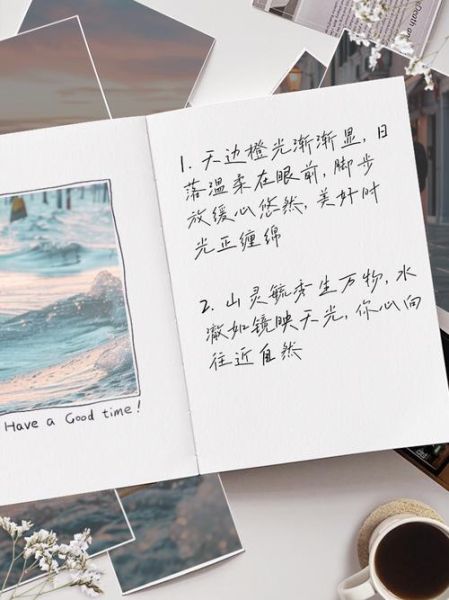 Death on
1. 天边橙光渐渐显，日
落温柔在眼前，脚步
放缓心悠然，美好时
光正缠绵
2. 山灵毓秀生万物，水
澈如镜映天光，你心向
往近自然
Have a Good time!